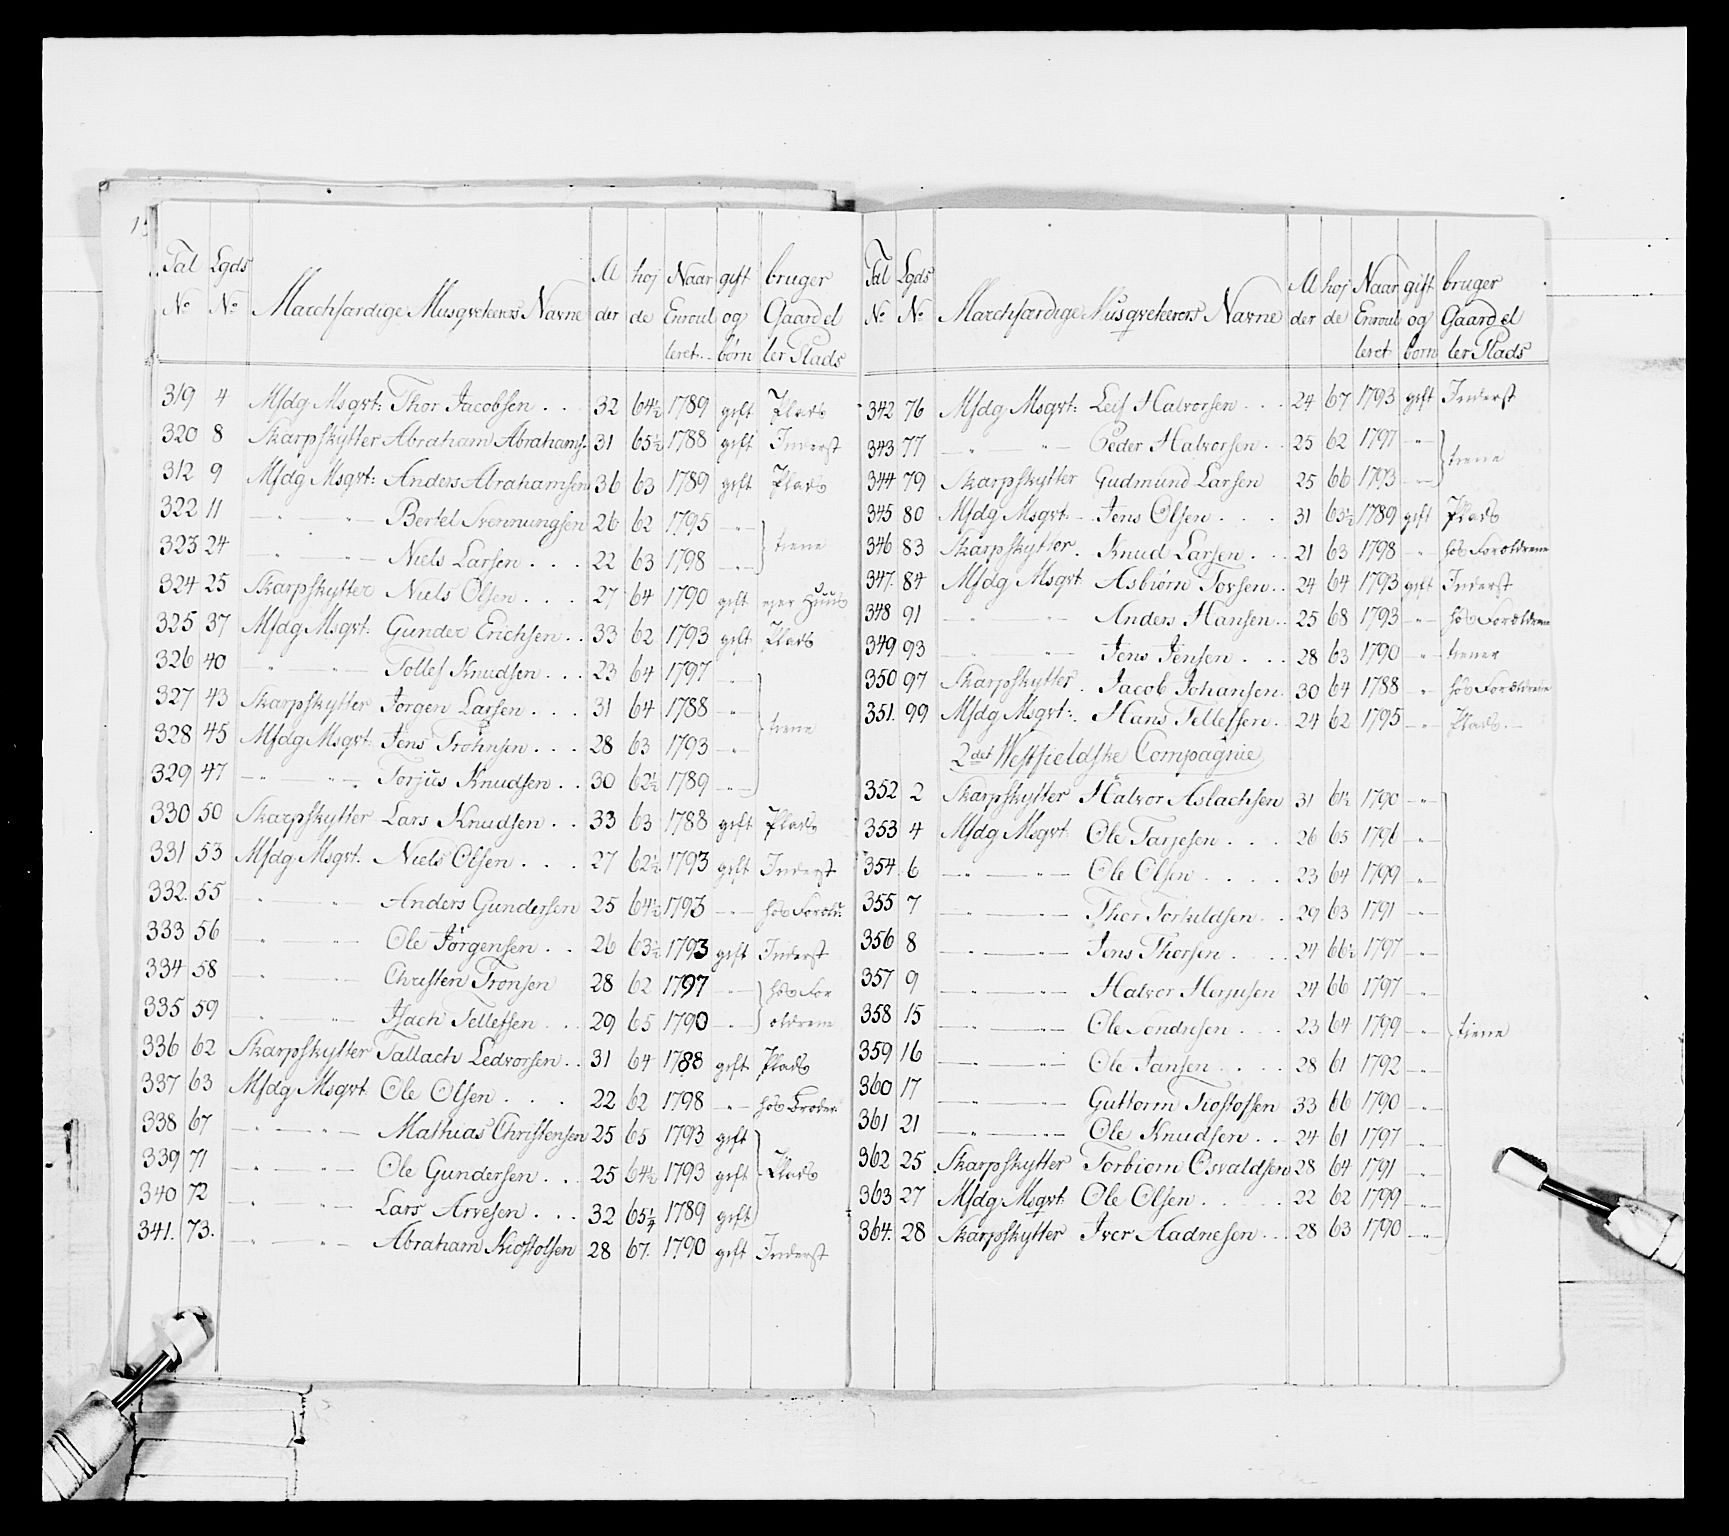 Tal Lgds Al höj Naar gift bruger
No No Marchfærdige Musqveterers Navne der de Enroul og Gaard el
leret börn ler Plads
319 4 Mfdg Msqvt: Thor Jacobsen . . 32 64½ 1789 gift Plads
320 8 Skarpskytter Abraham Abrahams. 31 65½ 1788 gift Inderst
312 9 Mfdg Msqvt: Anders Abrahamsen 36 63 1789 gift Plads
322 11 — " — " — Bertel Svennungsen 26 62 1795 — " —
323 24 — " — " — Niels Larsen . . . 22 63 1798 — " — } tiene
324 25 Skarpskytter Niels Olsen . . . 27 64 1790 gift ejer Huus
325 37 Mfdg Msqvt: Gunder Erichsen . . 33 62 1793 gift Plads
326 40 — " — " — Tollef Knudsen . . . 23 64 1797 — " —
327 43 Skarpskytter Jörgen Larsen . . . 31 64 1788 — " —
328 45 Mfdg Msqvt. Jens Trohnsen . . . 28 63 1793 — " — } tiene
329 47 — " — " — Torjus Knudsen . . 30 62½ 1789 — " —
330 50 Skarpskytter Lars Knudsen . . 33 63 1788 gift Plads
331 53 Mfdg Msqvt. Niels Olsen . . . 27 62½ 1793 gift Inderst
332. 55 — " — " — Anders Gundersen 25 64½ 1793 — " — hos Forældr:
333 56 — " — " — Ole Jörgensen . . 26 63½ 1793 gift Inderst
334 58 — " — " — Christen Tronsen 28 62 1797 — " — } hos For
335 59 — " — " — Isach Tellefsen . . . 29 65 1790 — " — } ældrene
336 62 Skarpskytter Tallach Ledvorsen . . 31 64 1788 gift Plads
337 63 Mfdg Msqvt Ole Olsen . . . 22 62 1798 — " — hos Broder
338 67 — " — " — Mathias Christensen 25 65 1793 gift
339 71 — " — " — Ole Gundersen . . . 25 64½ 1793 gift } Plads
340 72 — " — " — Lars Arvesen . . . 32 65¼ 1789 gift
341. 73. — " — " — Abraham Kiostolsen 28 67. 1790 gift Inderst
Tal Lgds Al höj Naar gift bruger
No No Marchfærdige Musqveterers Navne der de Enroul og Gaard el
leret börn ler Plads
342 76 Mfdg Msqvt: Leif Halvorsen . . . 24 67 1793 gift Inderst
343 77 — " — " — Peder Halvorsen . . 25 62 1797 — " —
344 79 Skarpskytter Gudmund Larsen 25 66 1793 — " — } tiene
345 80 Mfdg Msqvt. Jens Olsen . . . 31 65½ 1789 gift Plads
346 83 Skarpskytter. Knud Larsen . . . 21 63 1798 " hos Forældrene
347. 84 Mfdg Msqvt Asbiørn Tovsen . . 24 64 1793 gift Inderst
348 91 — " — " — Anders Hansen . . 25 68 1793 — " — hos Forældrene
349 93 — " — " — Jens Jensen . . . 28 63 1790 — " — tiener
350 97 Skarpskytter. Jacob Johansen. 30 64 1788 " hos Forældrene
351. 99 Mfdg Msqvt:. Hans Tellefsen . . 24 62 1795 — " — Plads. —
2det Westfieldske Compagnie
352 2 Skarpskytter Halvor Aslachsen 31 61½ 1790 — " —
353 4 Mfdg Msqvt. Ole Tarjesen . . . . 26 65 1796 — " —
354. 6 — " — " — Ole Olsen . . . . 23 64 1799 — " —
355 7 — " — " — Thor Torkildsen . . 29 63 1791 — " —
356 8 — " — " — Jens Thorsen . . . 24 66½ 1797 — " —
357 9 — " — " — Halvor Herjusen 24 66 1797 — " —
358 15 — " — " — Ole Tondresen . . . 23 64 1799 — " — } tiene
359 16 — " — " — Ole Jansen . . . . 28 61 1792 — " —
360 17 — " — " — Guttorm Kiostolsen 33 66 1790 — " —
361 21 — " — " — Ole Knudsen . . . 24 61 1797 — " —
362 25 Skarpskytter Torbiorn Osvaldsen 28 64 1791 — " —
363 27 Mfdg Msqvt. Ole Olsen . . . . 22 62 1799 — " —
364. 28 Skarpskytter Iver Aadnesen . . . 28 63 1790 — " —